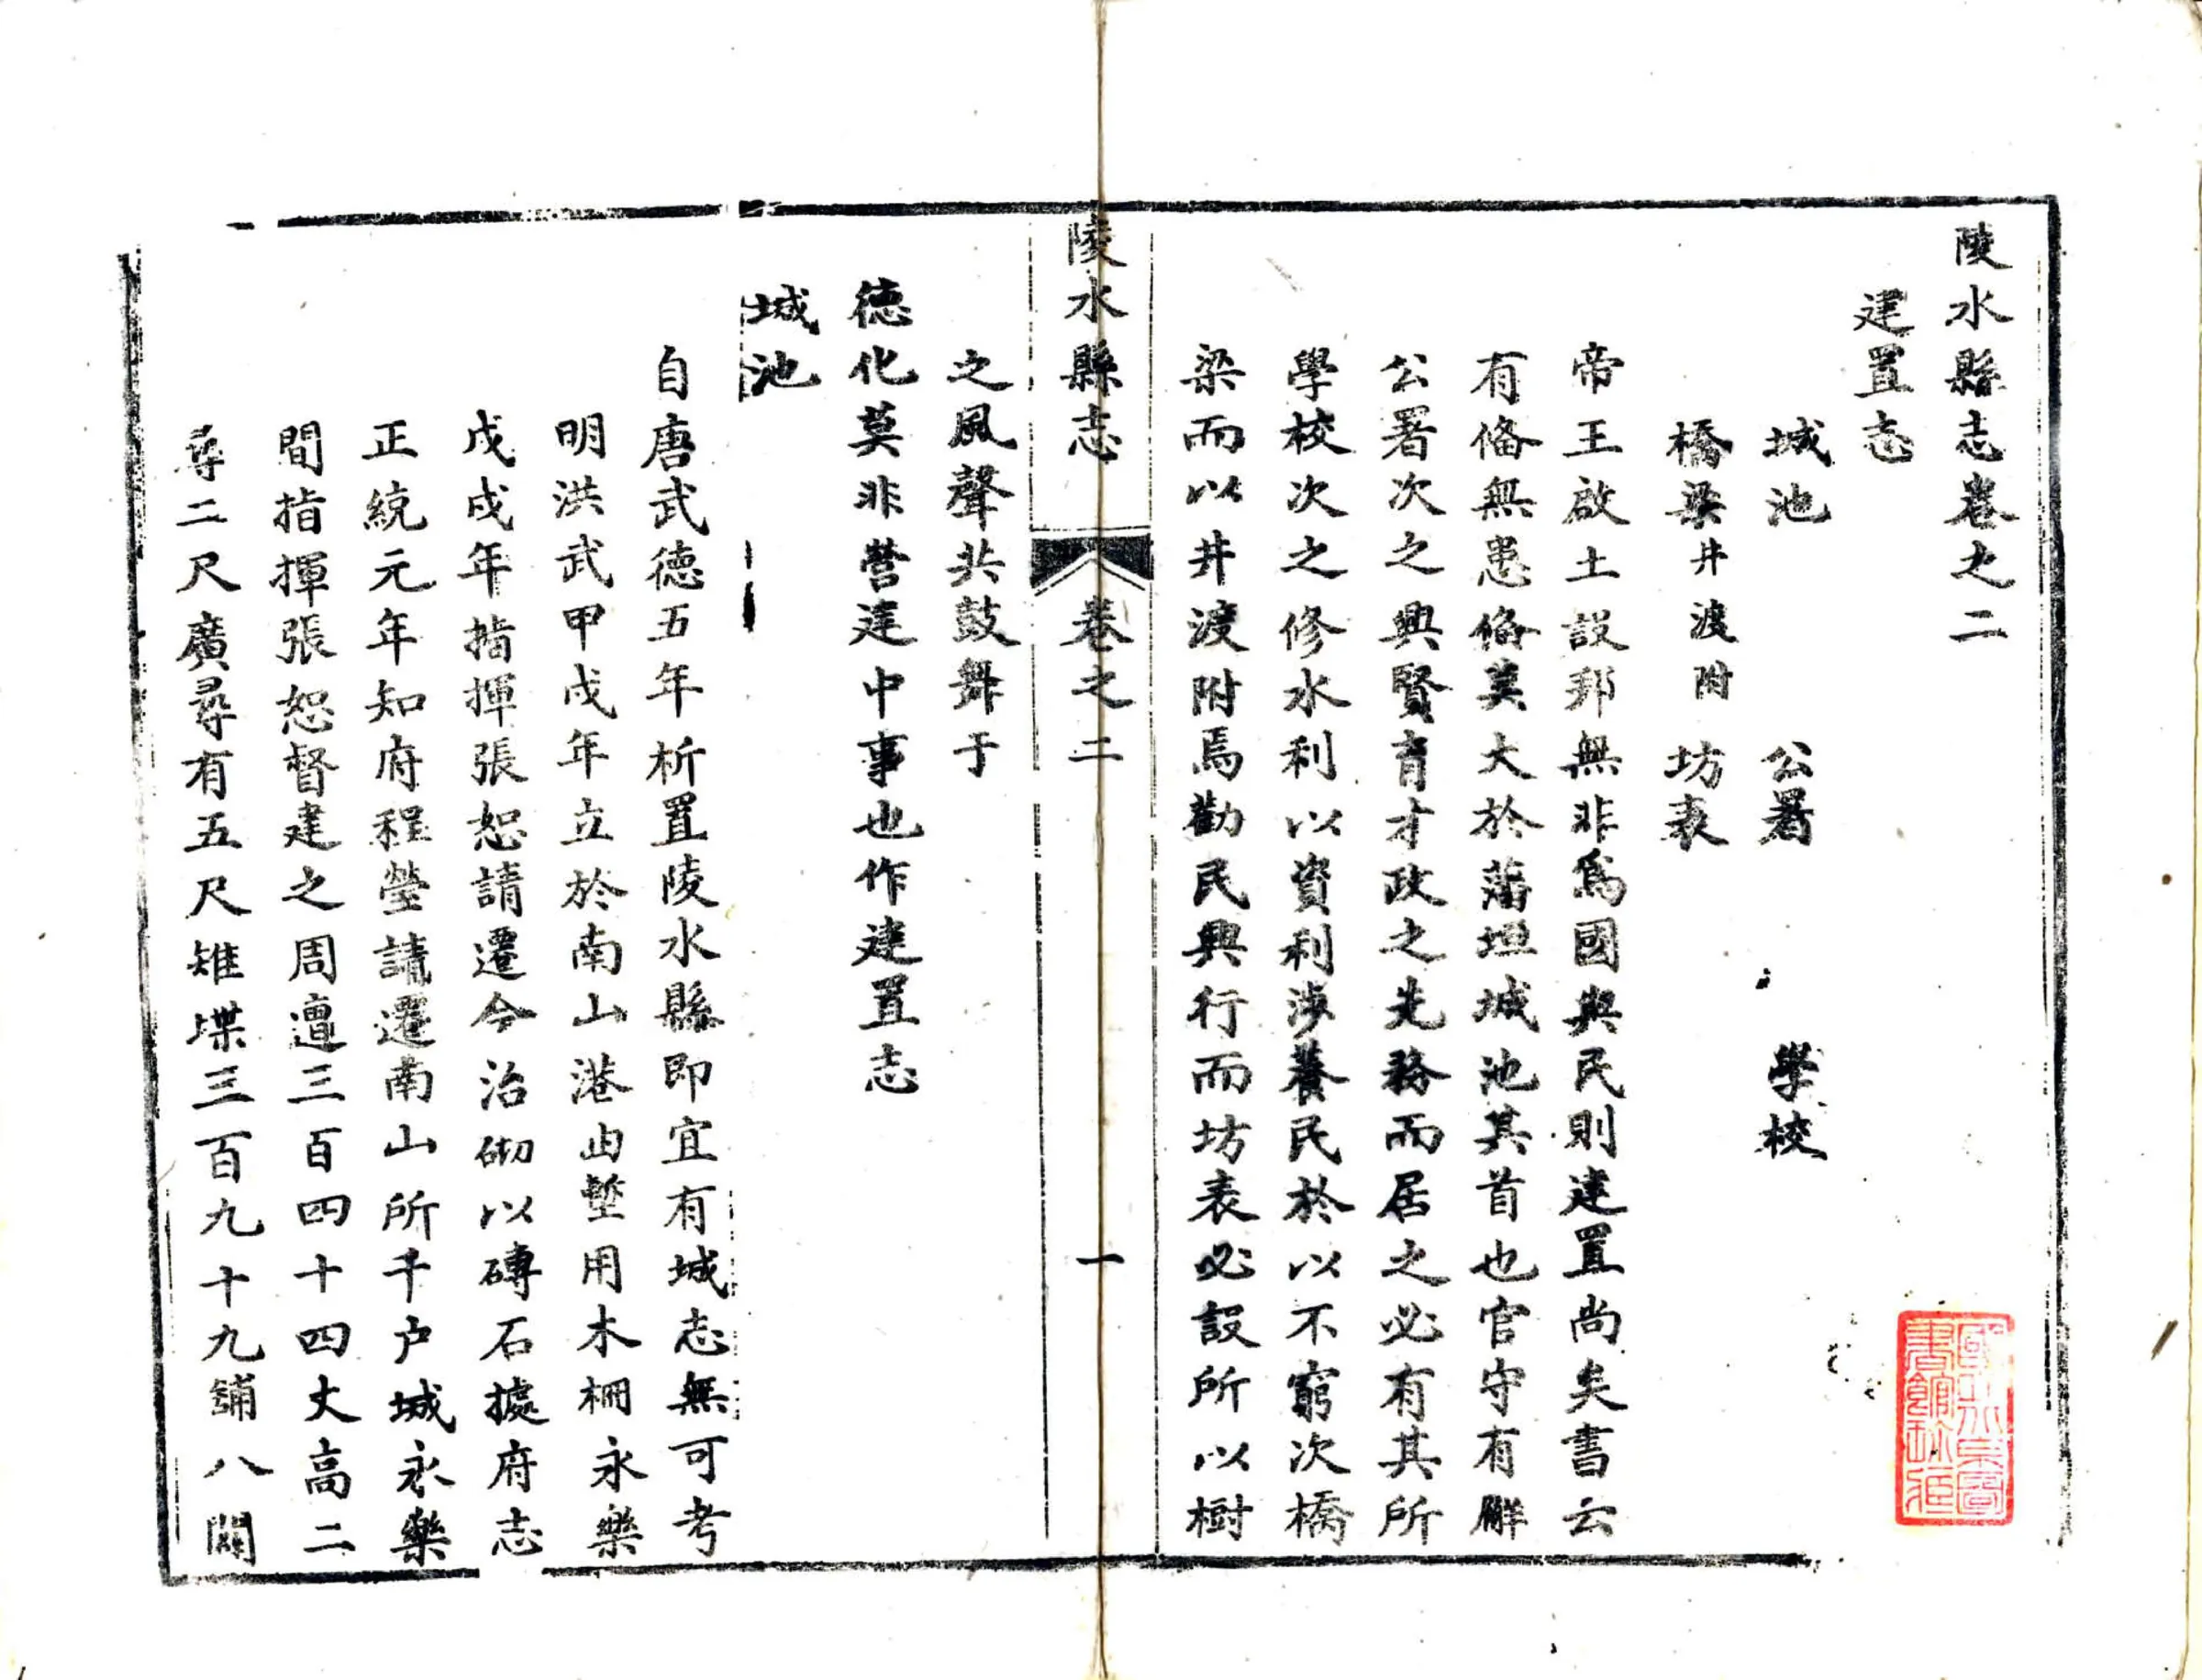 陵水縣志卷之二
建置志
城池　公署　學校
橋梁井渡附　坊表
帝王啟土設邦無非爲國與民則建置尚矣書云
有俻無患俻莫大於藩垣城池其首也官守有廨
公署次之興賢育才政之先務而居之必有其所
學校次之修水利以資利涉養民於以不窮次橋
梁而以井渡附焉勸民興行而坊表必設所以樹
陵水縣志　卷之二　一
之風聲共鼓舞于
德化莫非營建中事也作建置志
城池
自唐武德五年析置陵水縣即宜有城志無可考
明洪武甲戌年立於南山港由塹用木柵永樂
戊戌年指揮張恕請遷今治砌以磚石據府志
正統元年知府程瑩請遷南山所千户城永樂
間指揮張恕督建之周邅三百四十四丈高二
尋二尺廣尋有五尺雉堞三百九十九舖八開